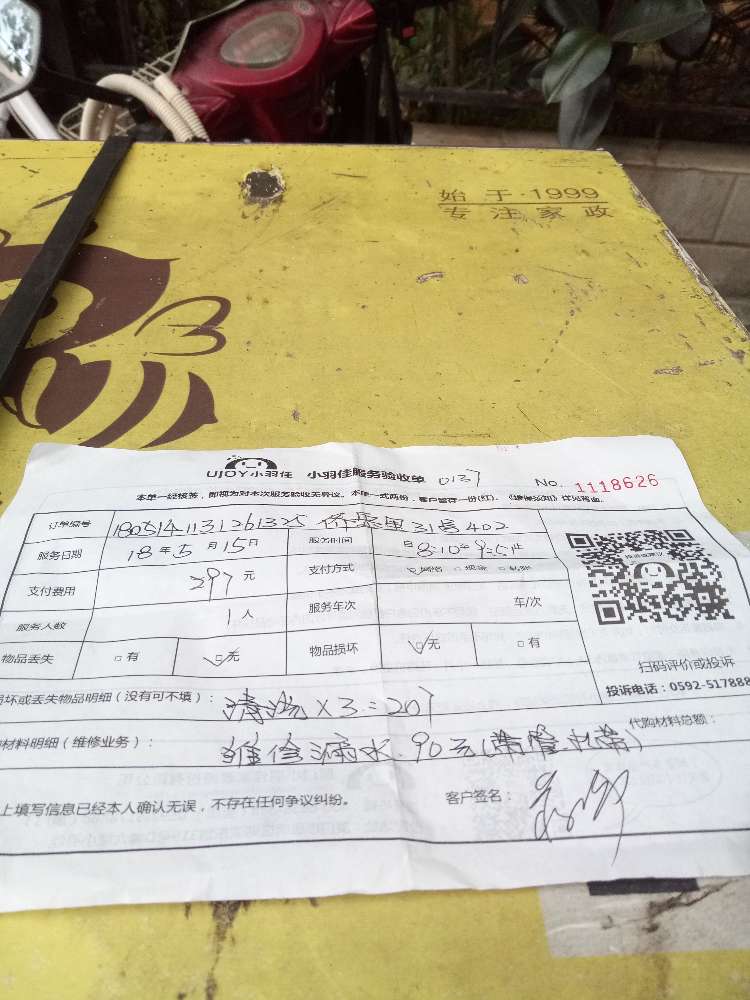 始于·1999
专注家政
UJOY小羽佳 小羽佳服务验收单 0137 No. 1118626
本单一经核签，即视为对本次服务验收无异议。本单一式两份，客户留存一份(红)。
订单编号 侨聚里31号402
服务日期 18年5月15日 服务时间
支付费用 297元 支付方式
服务人数 1人 服务车次 车/次
物品丢失 □有 ☑无 物品损坏 ☑无 □有
扫码评价或投诉
投诉电话：0592-517888
坏或丢失物品明细（没有可不填）： 清洗×3=207
代购材料总额：
材料明细（维修业务）： 维修漏水.90元
上填写信息已经本人确认无误，不存在任何争议纠纷。 客户签名：